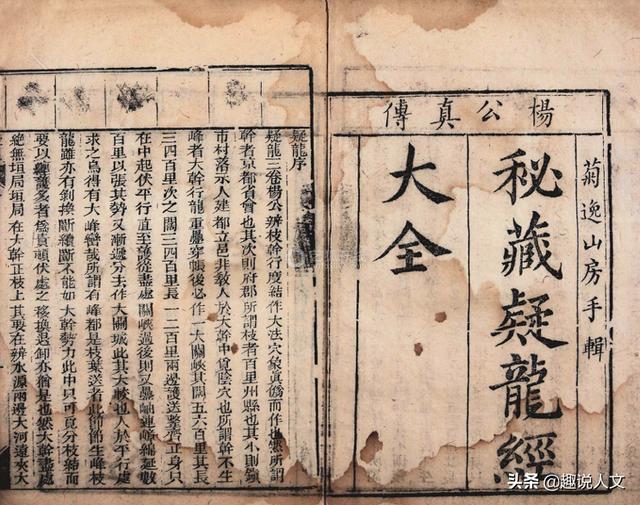 楊公真傳
菊逸山房手輯
秘藏疑龍經
大全
疑龍序
疑龍三卷楊公辨枝幹行度結作大法穴象真僞而作也然所謂
幹者京都省會也其次則府郡所謂枝者百里州縣也其小則鎮
市村落示人建都立邑非教人於大幹中覓陰穴也所謂幹不生
峰者大幹行龍重疊穿帳後必作一大關峽其闊五六百里其長
三四百里次之闊三四百里長一二百里兩邊護送整齊正身只
在中起伏平行直至護從盡處關峽過後則又疊嶂連緜延數
百里以張其勢又漸過分去作大關城此其大峽也人於平行處
求之烏得有大峰巒哉所謂有峰都是枝葉送者此節節生峰枝
龍雖亦有剝換斷續斷不能如大幹勢力此中只可覓分枝結而
要以纏護多者為真頓伏處之移換退卸亦猶是也然大幹盡處
絕無垣局垣局在大幹正枝上其要在辨水源兩邊大河遠夾大
头条@趣说人文